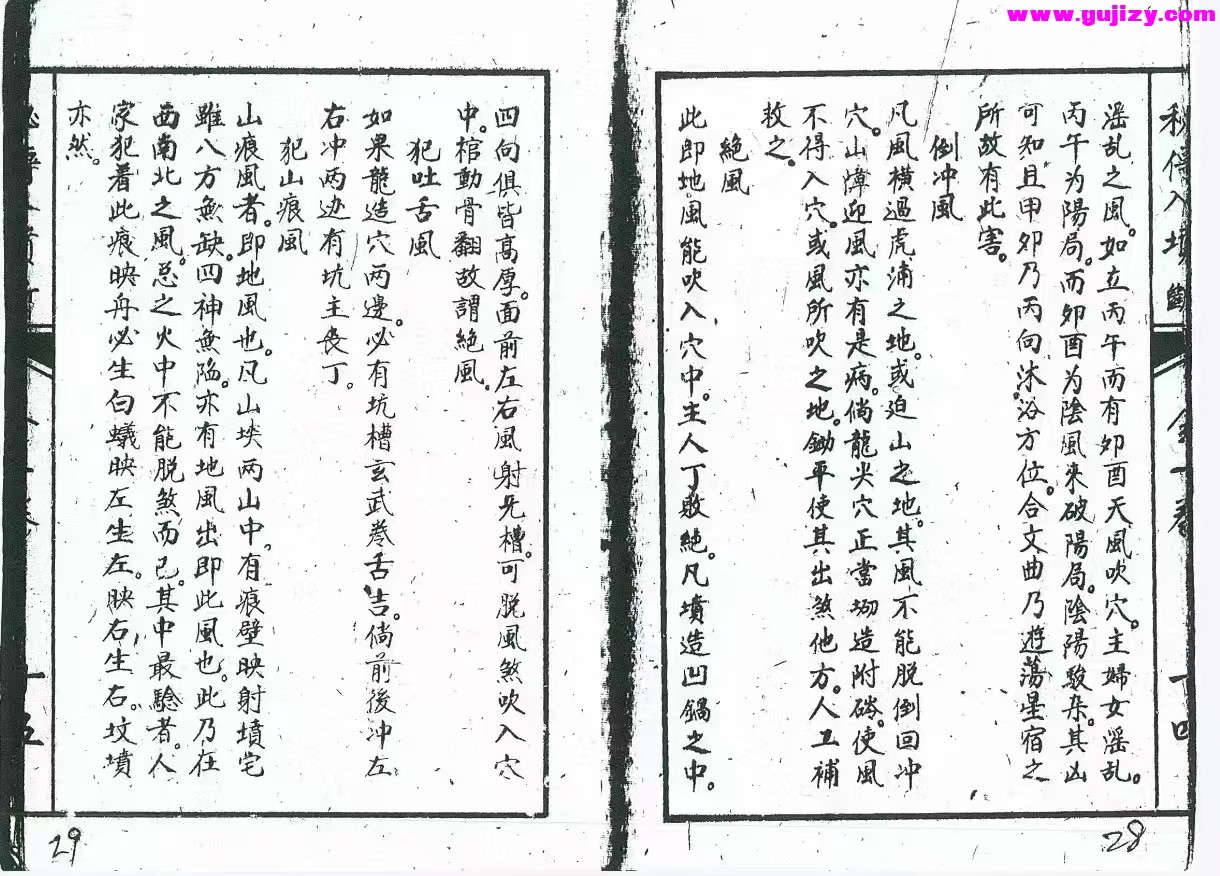 www.gujizy.com
秘傳入墳斷 全一卷 十四
淫乱之風。如立丙午而有夘酉天風吹穴。主婦女淫乱。
丙午为陽局。而夘酉为陰風来破陽局。陰陽駁杂。其凶
可知且甲夘乃丙向沐浴方位。合文曲乃遊蕩星宿之
所故有此害。
倒冲風
凡風横過虎浦之地。或迫山之地。其風不能脱倒回冲
穴。山 迎風亦有是病。倘龍尖穴正當坳造附 。使風
不得入穴。或風所吹之地。鋤平使其出煞他方。人工補
救之。
絕風
此即地風能吹入穴中。主人丁敗絕。凡墳造凹鍋之中。
四向俱皆高厚。面前左右風射無槽。可脱風煞吹入穴
中。棺動骨翻故謂絕風。
犯吐舌風
如果龍造穴两邊。必有坑槽玄武卷舌吉。倘前後冲左
右冲两边有坑主丧丁。
犯山痕風
山痕風者。即地風也。凡山埉两山中。有痕壁映射墳宅
雖八方無缺。四神無陷。亦有地風出即此風也。此乃在
西南北之風。总之火中不能脱煞而已。其中最驗者。人
家犯着此痕映舟必生白蟻映左生左。映右生右。坟墳
亦然。
五
28
29